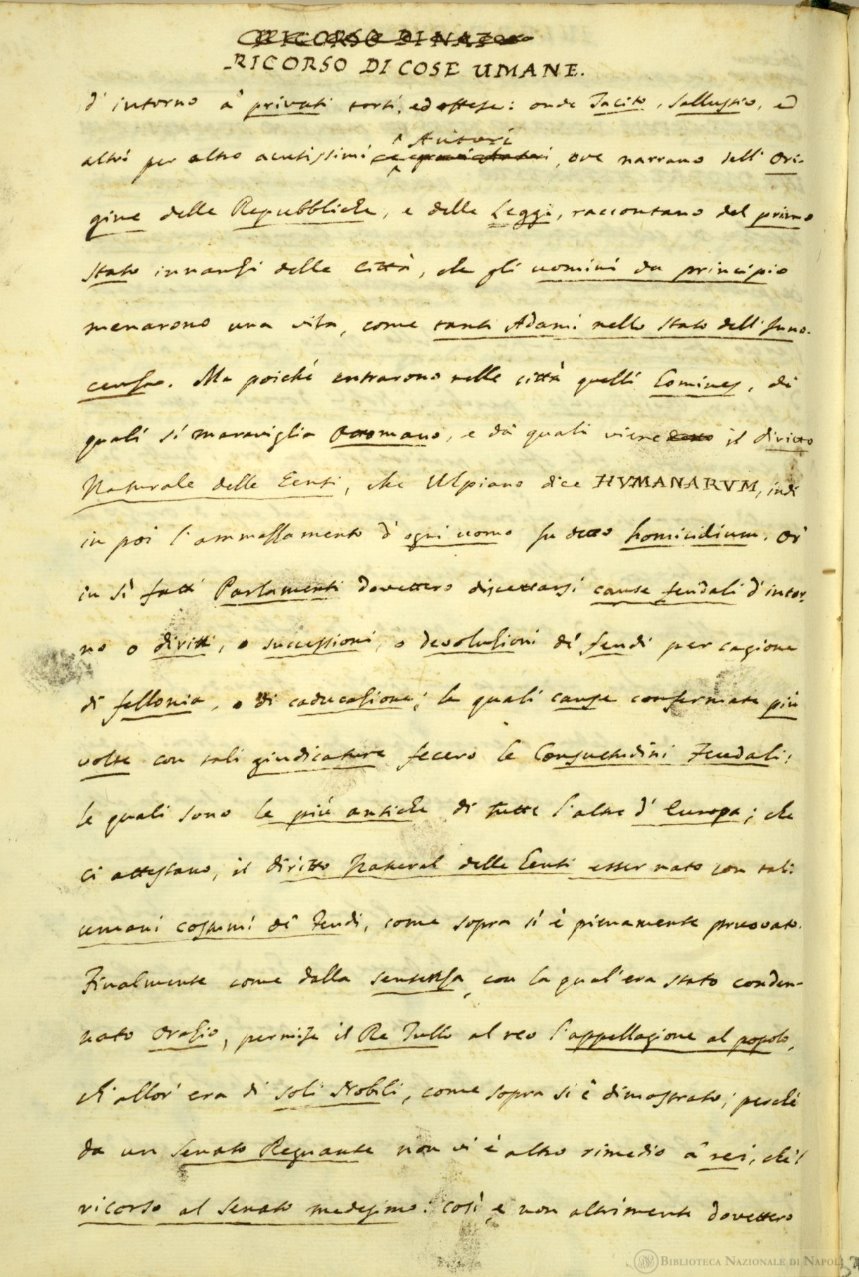 RICORSO DI NAZ
RICORSO DI COSE UMANE.
d'intorno a' privati torti, ed offese: onde Tacito, Sallustio, ed
altri per altro acutissimi Autori, ove narrano dell'Ori-
gine delle Repubbliche, e delle Leggi, raccontano del primo
Stato innanzi delle Città, che gli uomini da principio
menarono una vita, come tanti Adami nello stato dell'Inno-
cenza. Ma poiché entrarono nelle città quelli homines, di
quali si maraviglia Ottomano, e da' quali viene detto il diritto
Naturale delle Genti, che Ulpiano dice HVMANARVM, indi
in poi l'ammassamento d'ogni uomo fu detto homicidium. Or'
in sì fatti Parlamenti dovettero discettarsi cause feudali d'intor-
no o diritti, o successioni, o devoluzioni de' feudi per cagione
di fellonia, o di caducazione; le quali cause confermate più
volte con tali giudicature fecero le Consuetudini Feudali;
le quali sono le più antiche di tutte l'altre d'Europa; che
ci attestano, il diritto Natural delle Genti esser nato con tali
umani costumi de' Feudi, come sopra si è pienamente pruovato.
Finalmente come dalla sentenza, con la qual'era stato conden-
nato Orazio, permise il Re Tullo al reo l'appellagione al popolo,
ch'allor'era di soli Nobili, come sopra si è dimostrato; perché
da un Senato Regnante non vi è altro rimedio a' rei, che'l
ricorso al Senato medesimo. Così, e non altrimente dovettero
BIBLIOTECA NAZIONALE DI NAPOLI